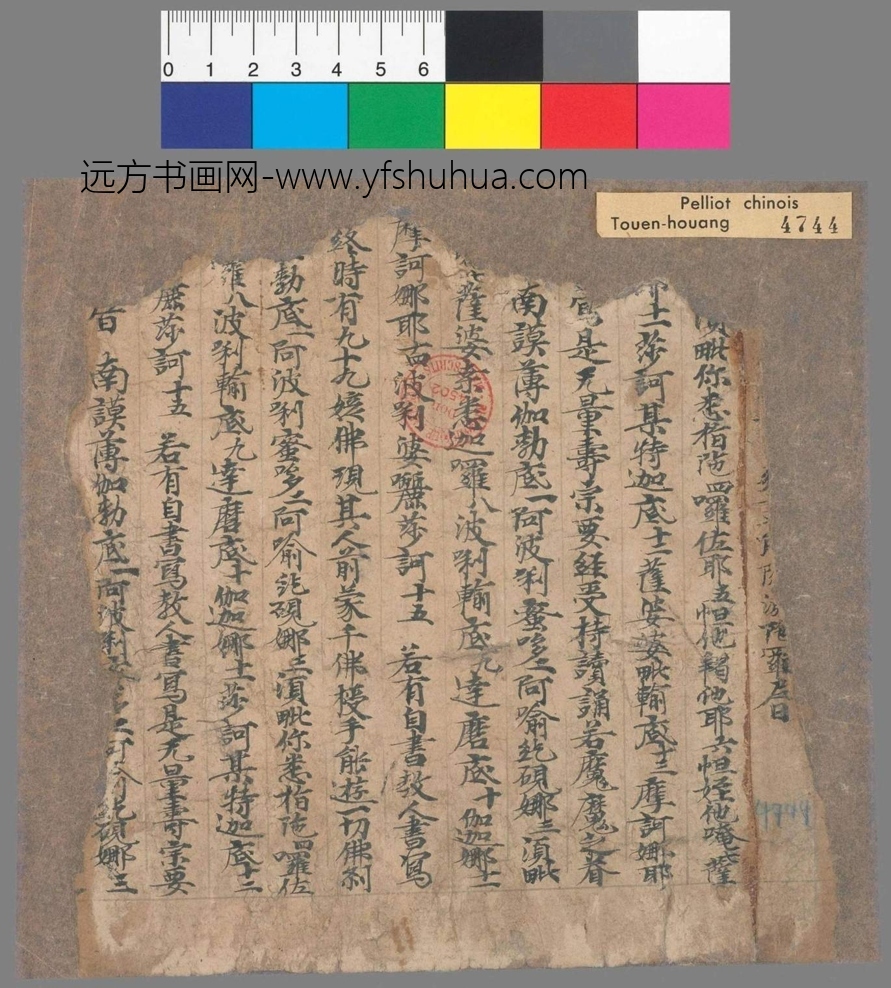 0 1 2 3 4 5 6
远方书画网-www.yfshuhua.com
Pelliot chinois
Touen-houang 4744
羅尼曰
4744
須毗你悉指陁四囉佐耶五怛他羯他耶六怛姪他唵七薩
土莎訶某特迦底十二薩婆婆毗輸底十三摩訶娜耶
寫是无量壽宗要經受持讀誦若魔魔之眷
南謨薄伽勃底一阿波唎蜜哆二阿喻紇硯娜三須毗
薩婆桒悉迦囉八波唎輸底九達磨底十伽迦娜土
摩訶娜耶十四波唎婆囄莎訶十五 若有自書教人書寫
終時有九十九姟佛現其人前蒙千佛授手能遊一切佛剎
勃底一阿波唎蜜哆二阿喻紇硯娜三須毗你悉指陁四囉佐
羅八波唎輸底九達磨底十伽迦娜土莎訶某特迦底十二
囄莎訶十五 若有自書寫教人書寫是无量壽宗要
南謨薄伽勃底一阿波唎 哆二阿喻紇硯娜三